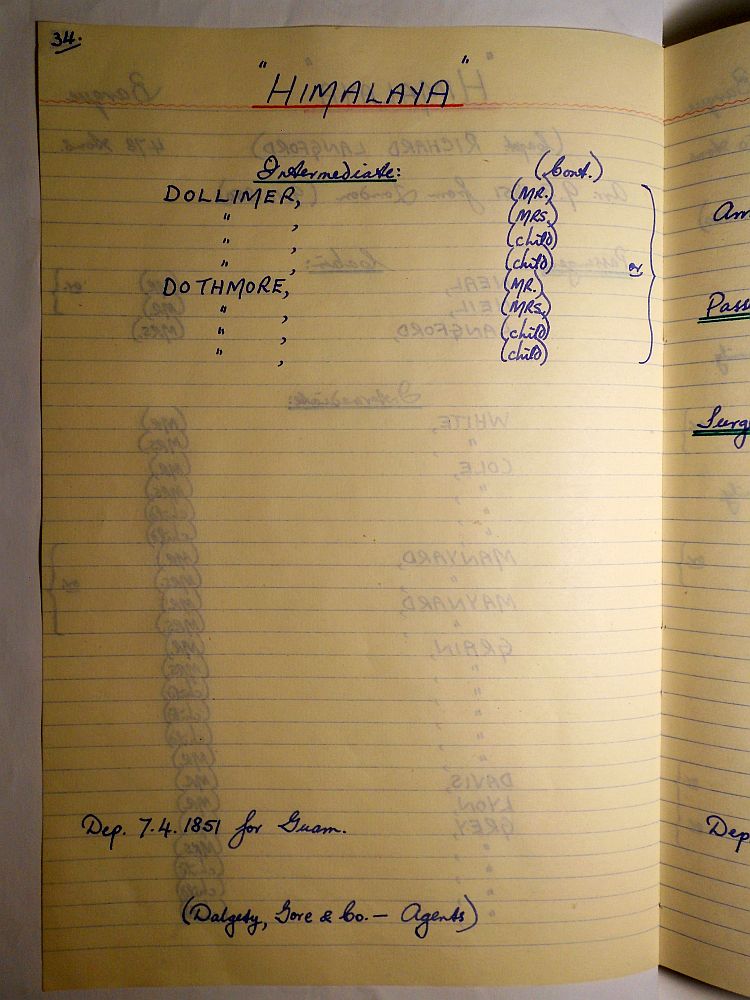 34.
"HIMALAYA"
Intermediate: (Cont.)
DOLLIMER, (MR.)
" , (MRS.)
" , (child)
" , (child) or
DOTHMORE, (MR.)
" , (MRS.)
" , (child)
" , (child)
Dep. 7.4.1851 for Guam.
(Dalgety, Gore & Co. — Agents)